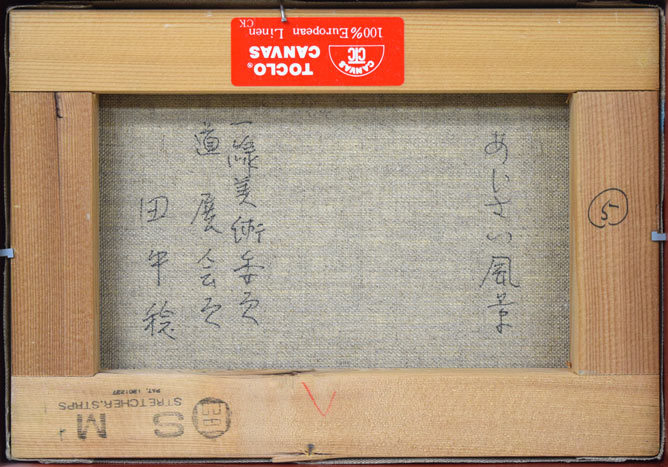 あじさい風景
一線美術委員
道展会員
田中稔
⑤
CANVAS
CIC
TOCLO®
CANVAS
100% European Linen
CK
S M
STRETCHER.STRPS